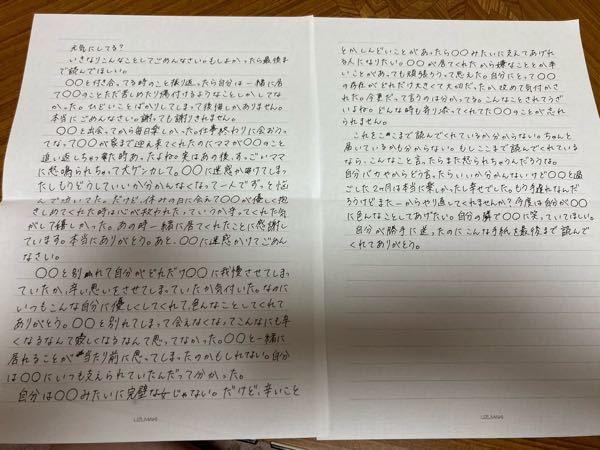 元気にしてる?
いきなりこんなことしてごめんなさい。もしよかったら最後ま
で読んでほしい。
〇〇と付き合ってる時のこと振り返ったら自分は一緒に居
て〇〇のことただ苦しめたり傷付けるようなことしかしてな
かった。ひどいことばかりしてしまって後悔しかありません。
本当にごめんなさい。謝っても謝りきれません。
〇〇と出会ってから毎日楽しかった。仕事終わりに会おうっ
てなって〇〇が家まで迎え来てくれたのにママが〇〇のこと
追い返しちゃった時あったよね。実はあの後、すっごいママ
に怒鳴られちゃって大ケンカして。〇〇に迷惑かけてしまっ
たしもうどうしていいか分かんなくなって一人でずっと悩
んで泣いてた。だけど、休みの日に会えて〇〇が優しく抱
きしめてくれた時は心が救われたっていうか守ってくれた気
がして嬉しかった。あの時一緒に居てくれたことに感謝し
ています。本当にありがとう。あと、〇〇に迷惑かけてごめん
なさい。
〇〇と別れて自分がどれだけ〇〇に我慢させてしまっ
ていたか、辛い思いをさせてしまっていたか気付いた。なのに
いつもこんな自分に優しくしてくれて、色んなことしてくれて
ありがとう。〇〇と別れてしまって会えなくなってこんなにも辛
くなるなんて寂しくなるなんて思ってなかった。〇〇と一緒に
居れることが当たり前に思ってしまってたのかもしれない。自分
は〇〇にいつも支えられていたんだって分かった。
自分は〇〇みたいに完璧な女じゃない。だけど、辛いこと
UZUMAKI
とかしんどいことがあったら〇〇みたいに支えてあげれ
る人になりたい。〇〇が居てくれたから嫌なこととか辛
いことがあっても頑張ろうって思えた。自分にとって〇〇
の存在がどれだけ大きくて大切だったか改めて気付かさ
れた。今更だって言うのは分かってる。こんなことされてうざ
いよね。どんな時も寄り添ってくれてた〇〇のことが忘れ
られません。
これをここまで読んでくれているか分からない。ちゃんと
届いているかも分からない。もしここまで読んでくれている
なら、こんなこと言ったらまた怒られちゃうんだろうな。
自分バカやからどう言ったらいいか分かんないけど〇〇と過
ごした2ヶ月は本当に楽しかったし幸せでした。もう手遅れなんだ
ろうけどまた一からやり直してくれませんか?今度は自分が〇〇
に色んなことしてあげたい。自分の隣で〇〇に笑っていてほしい。
自分が勝手に送ったのにこんな手紙を最後まで読んで
くれてありがとう。
UZUMAKI